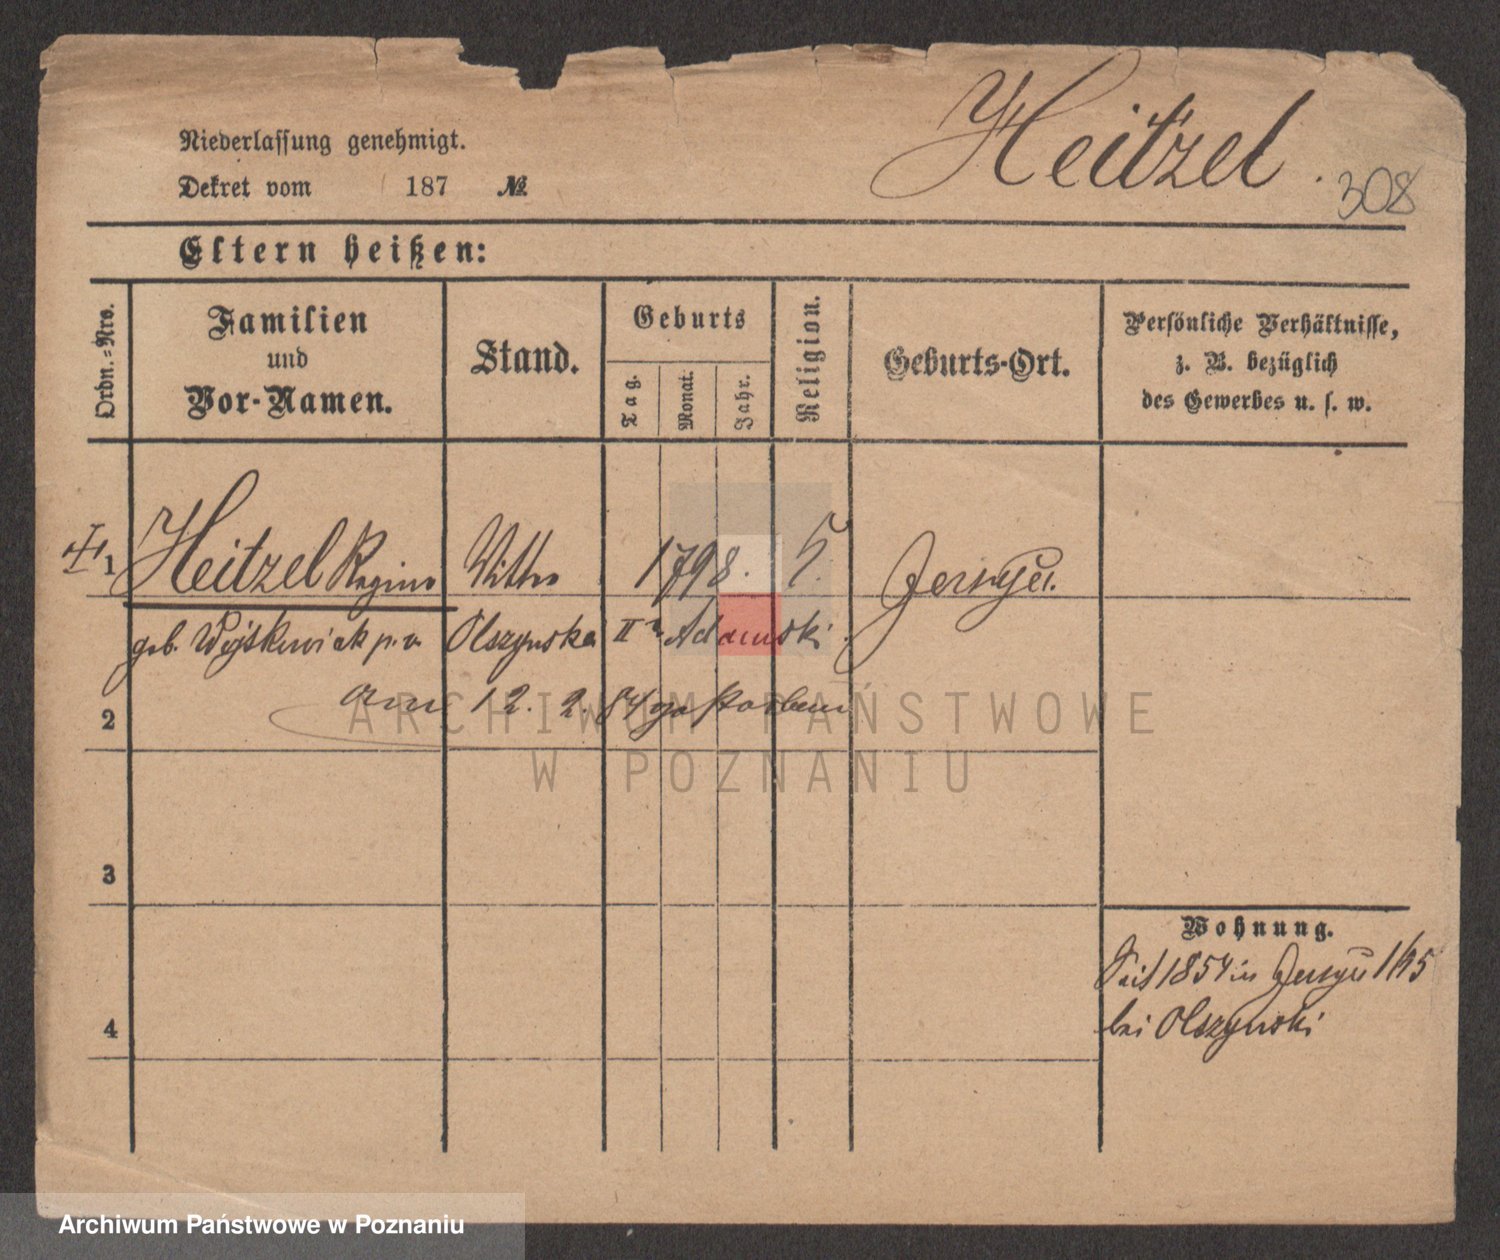 Heitzel.
308
Niederlassung genehmigt.
Dekret vom 187 №
Eltern heißen:
Ordn.-Nro.
Familien
und
Vor-Namen.
Stand.
Geburts
Tag.
Monat.
Jahr.
Religion.
Geburts-Ort.
Persönliche Verhältnisse,
z. B. bezüglich
des Gewerbes u. s. w.
1 Heitzel Regina 1798. Jersyce.
geb. p. v. Olszynska II Adamski
2 am 12. 2. 84 gestorben
3
4
Wohnung.
Seit 1854 in Jersyce
bei Olszynski
ARCHIWUM PAŃSTWOWE
W POZNANIU
Archiwum Państwowe w Poznaniu